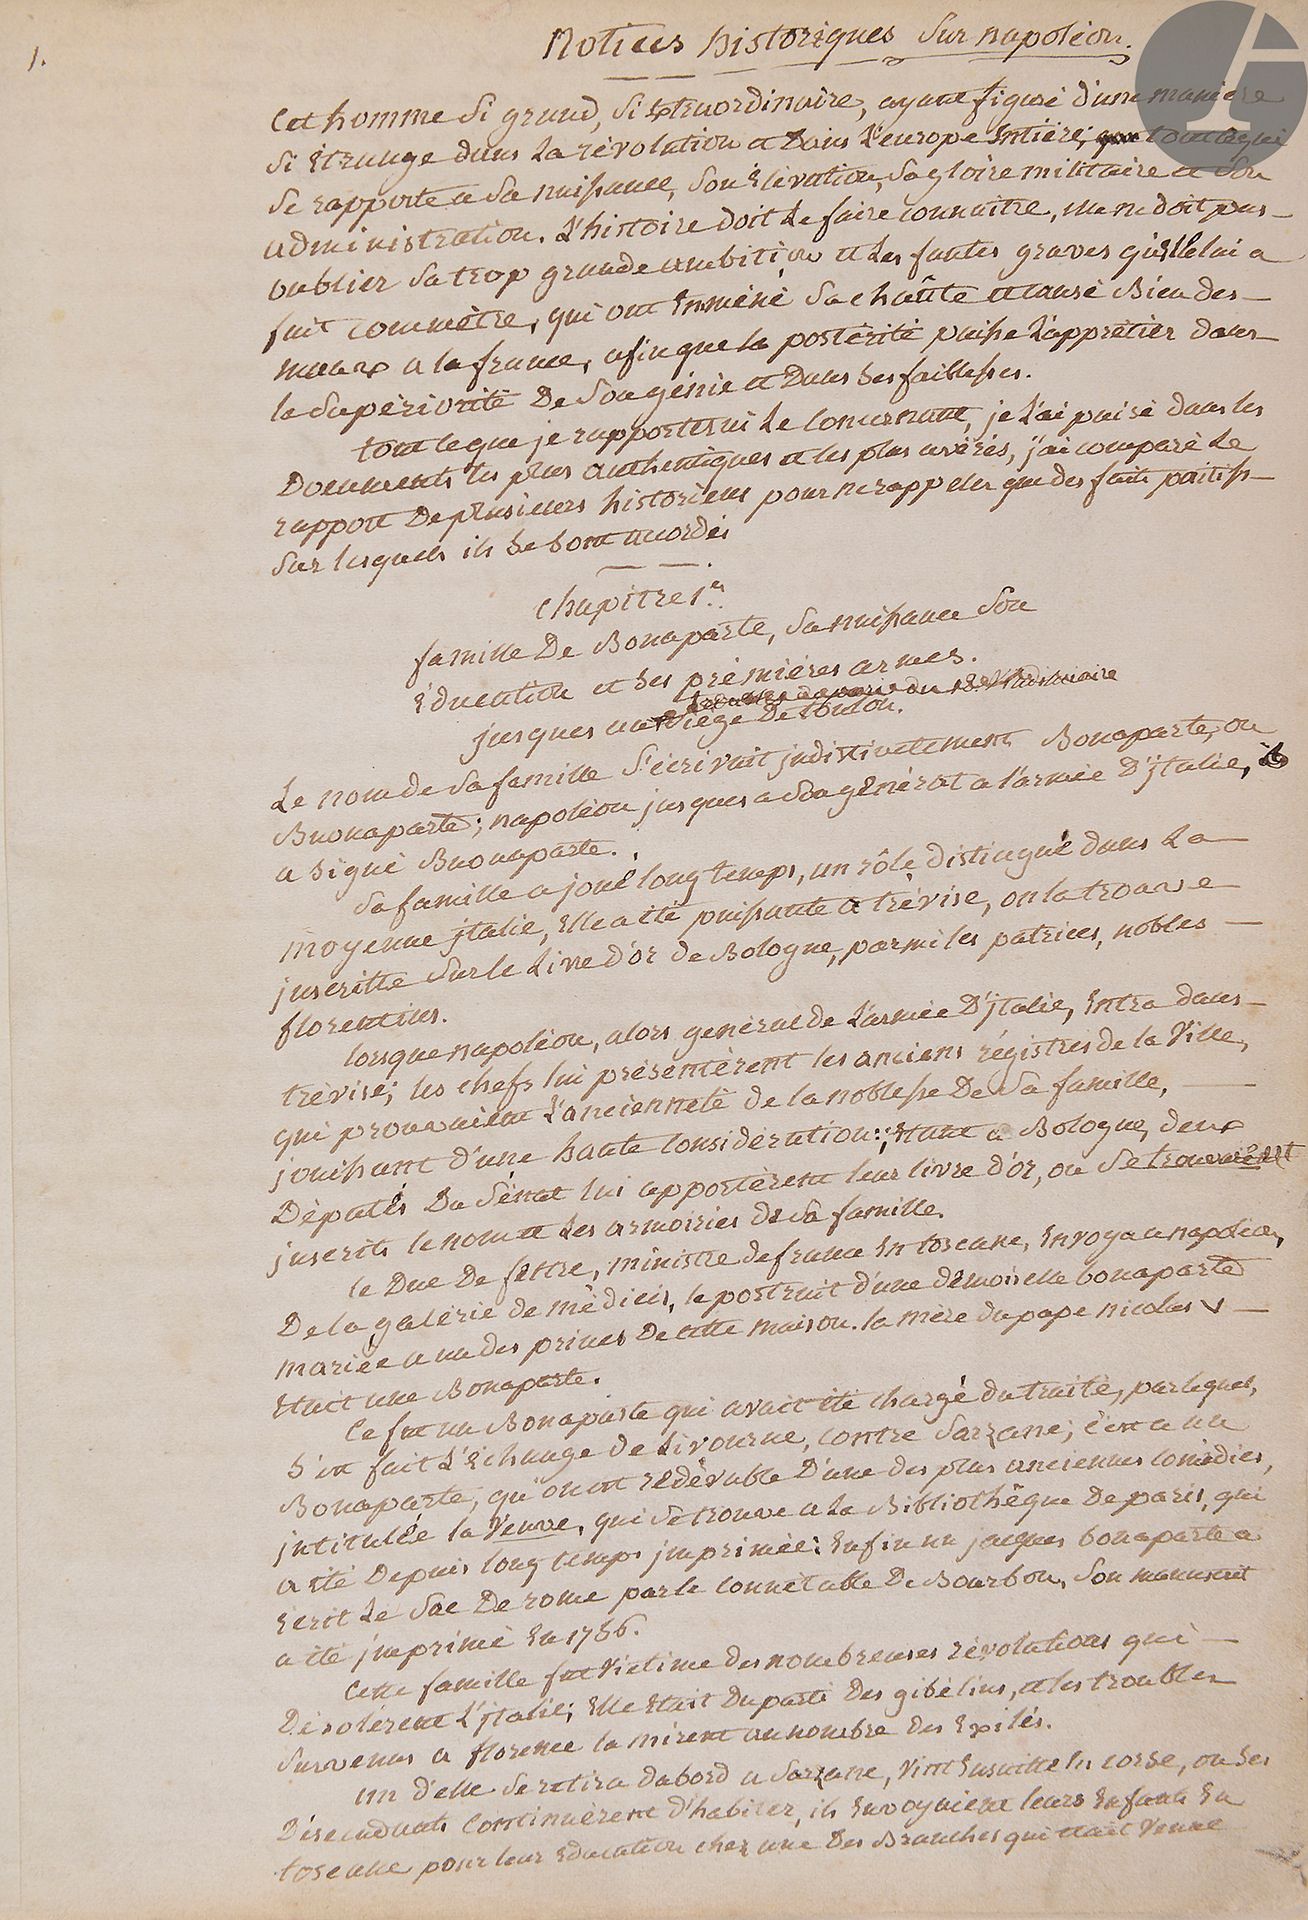 1.
Notices historiques sur napoléon.
Cet homme si grand, si extraordinaire, ayant figuré d'une manière
si étrange dans la révolution et dans l'europe entière; tout ce qui
se rapporte a sa naissance, son élévation, sa gloire militaire et son
administration. l'histoire doit le faire connaître, ne doit pas
oublier sa trop grande ambition et les fautes graves qu'elle lui a
fait commètre, qui ont enméné sa chaûte et causé bien des
maux a la france, afin que la postérité puisse l'apprétier dans
la supériorité de son génie et dans ses faiblesses.
tout ce que je rapporterai le concernant, je l'ai puisé dans les
documents les plus authentiques et les plus avérés, j'ai comparé le
rapport de plusieurs historiens pour ne rappeler que des faits positifs
sur lesquels ils se sont accordés
chapitre 1er.
famille de Bonaparte, sa naissance son
éducation et ses prémières armes.
jusques au siège de toulon.
Le nom de sa famille s'écrivait indistinctement Bonaparte, ou
Buonaparte; napoléon jusques a son généralat a l'armée d'jtalie,
a signé Buonaparte.
Sa famille a joué long temps, un rôle distingué dans la
moyenne jtalie, elle a été puissante a trévise, on la trouve
jnscritte sur le livre d'or de Bologne, parmi les patrices, nobles
florentins.
lorsque napoléon, alors genéral de l'armée d'jtalie, entra dans
trévise; les chefs lui présentèrent les anciens régistres de la ville,
qui prouvaient l'ancienneté de la noblesse de sa famille,
jouissant d'une haute considération; étant a Bologne, deux
députés du sénat lui apportèrent leur livre d'or, ou se trouvaient
jnscrits le nom et les armoiries de sa famille.
le Duc de feltre, ministre de france en toscane, envoya a napoléon,
De la galérie de médicis, le portrait d'une démoiselle bonaparte
mariée a un des princes de cette maison. la mère du pape nicolas v
était une Bonaparte.
Ce fut un Bonaparte qui avait été chargé du traité, par lequel,
s'en fait l'échange de livourne, contre Sarzane; c'est a un
Bonaparte, qu'on est rédévable d'une des plus anciennes comédies,
jntitulée la veuve, qui se trouve a la Bibliothêque de paris, qui
a été depuis long temps jmprimée: enfin un jacques bonaparte a
écrit le sac de rome par le connétable de Bourbon, son manuscrit
a été jmprimé en 1756.
Cette famille fut victime des nombreuses révolutions qui
désolérent l'jtalie; elle était du parti des gibélins, et les troubles
survenus a florence la mirent au nombre des exilés.
un d'elle se retira dabord a Sarzane, vint ensuitte en corse, ou ses
déscendants continuèrent d'habiter, ils envoyaient leurs enfants en
toscane pour leur éducation chez une des Branches qui était venue